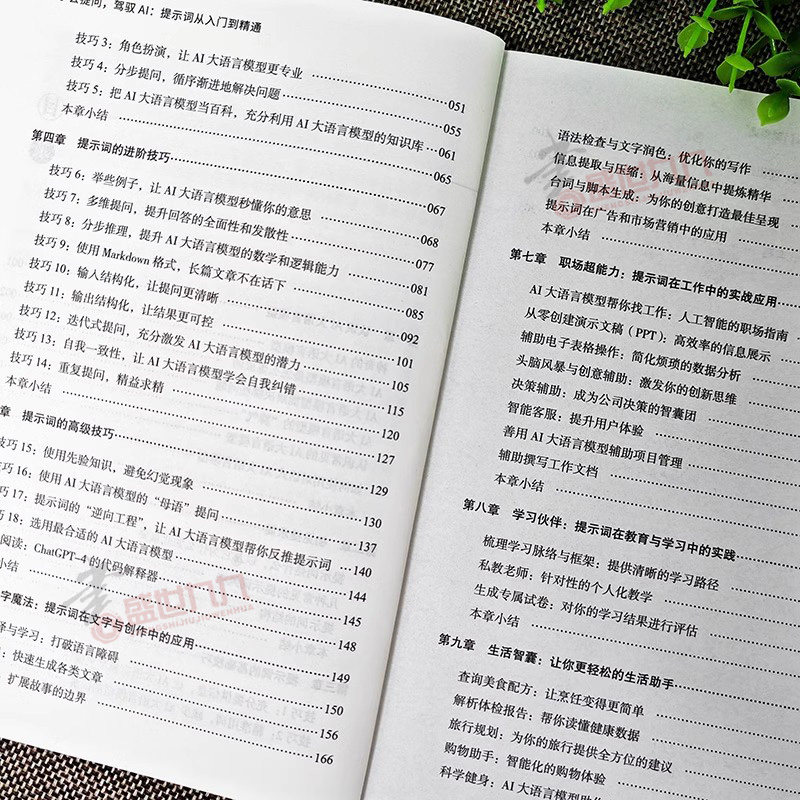 会提问，驾驭AI：提示词从入门到精通
技巧 3：角色扮演，让 AI 大语言模型更专业 …… 051
技巧 4：分步提问，循序渐进地解决问题 …… 055
技巧 5：把 AI 大语言模型当百科，充分利用 AI 大语言模型的知识库 …… 061
本章小结 …… 065
第四章 提示词的进阶技巧 …… 067
技巧 6：举些例子，让 AI 大语言模型秒懂你的意思 …… 068
技巧 7：多维提问，提升回答的全面性和发散性 …… 077
技巧 8：分步推理，提升 AI 大语言模型的数学和逻辑能力 …… 081
技巧 9：使用 Markdown 格式，长篇文章不在话下 …… 085
技巧 10：输入结构化，让提问更清晰 …… 092
技巧 11：输出结构化，让结果更可控 …… 101
技巧 12：迭代式提问，充分激发 AI 大语言模型的潜力 …… 105
技巧 13：自我一致性，让 AI 大语言模型学会自我纠错 …… 115
技巧 14：重复提问，精益求精 …… 120
本章小结 …… 127
章 提示词的高级技巧 …… 129
技巧 15：使用先验知识，避免幻觉现象 …… 130
技巧 16：使用 AI 大语言模型的“母语”提问 …… 137
技巧 17：提示词的“逆向工程”，让 AI 大语言模型帮你反推提示词 …… 140
18：选用最合适的 AI 大语言模型 …… 144
阅读：ChatGPT-4 的代码解释器 …… 145
小结 …… 148
字魔法：提示词在文字与创作中的应用 …… 149
译与学习：打破语言障碍 …… 150
：快速生成各类文章 …… 156
：扩展故事的边界 …… 166
语法检查与文字润色：优化你的写作
信息提取与压缩：从海量信息中提炼精华
台词与脚本生成：为你的创意打造最佳呈现
提示词在广告和市场营销中的应用
本章小结
第七章 职场超能力：提示词在工作中的实战应用
AI 大语言模型帮你找工作：人工智能的职场指南
从零创建演示文稿（PPT）：高效率的信息展示
辅助电子表格操作：简化烦琐的数据分析
头脑风暴与创意辅助：激发你的创新思维
决策辅助：成为公司决策的智囊团
智能客服：提升用户体验
善用 AI 大语言模型辅助项目管理
辅助撰写工作文档
本章小结
第八章 学习伙伴：提示词在教育与学习中的实践
梳理学习脉络与框架：提供清晰的学习路径
私教老师：针对性的个人化教学
生成专属试卷：对你的学习结果进行评估
本章小结
第九章 生活智囊：让你更轻松的生活助手
查询美食配方：让烹饪变得更简单
解析体检报告：帮你读懂健康数据
旅行规划：为你的旅行提供全方位的建议
购物助手：智能化的购物体验
科学健身：AI 大语言模型